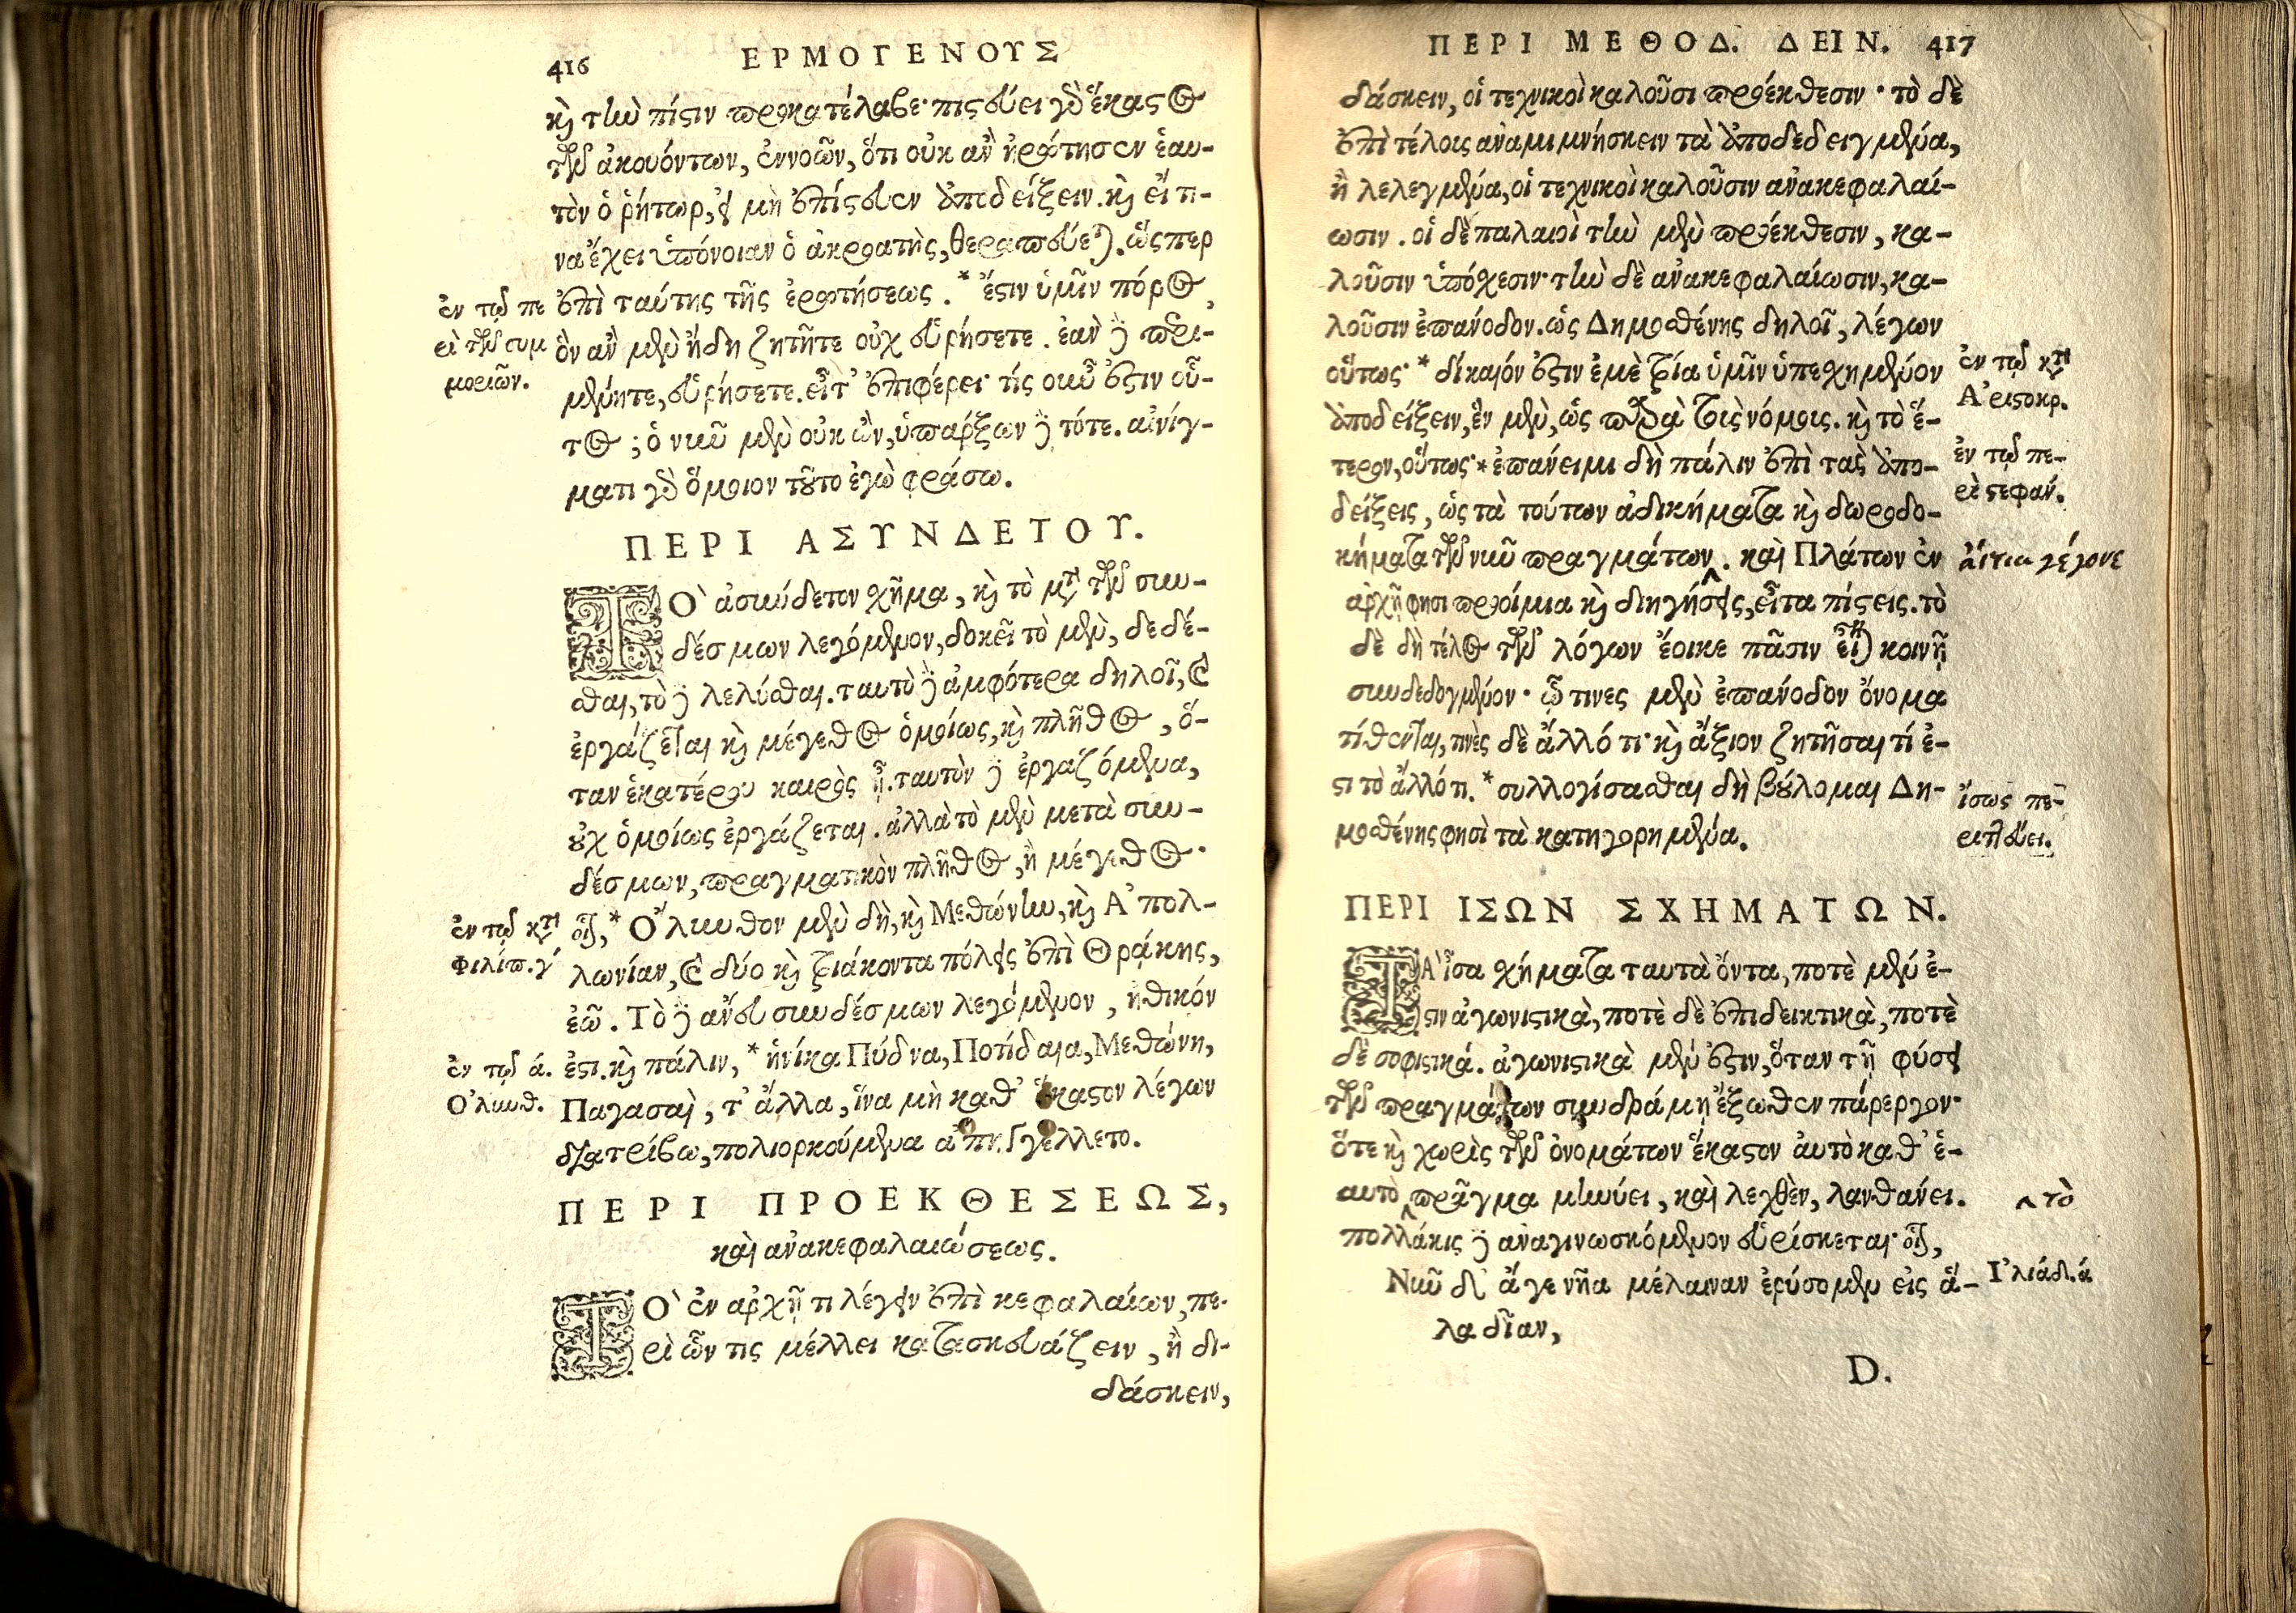 416 ΕΡΜΟΓΕΝΟΥΣ
καὶ τὴν πίστιν προκατέλαβε· πιστεύει γὰρ ἕκαστος
τῶν ἀκουόντων, ἐννοῶν, ὅτι οὐκ ἂν ἠρώτησεν ἑαυ-
τὸν ὁ ῥήτωρ, εἰ μὴ ἐπίστευεν ἀποδείξειν. καὶ εἴ τι-
να ἔχει ὑπόνοιαν ὁ ἀκροατὴς, θεραπεύεται. ὥσπερ
ἐπὶ ταύτης τῆς ἐρωτήσεως. * ἔστιν ὑμῖν πόρος,
ὃν ἂν μὲν ἤδη ζητῆτε οὐχ εὑρήσετε. ἐὰν δὲ περι-
μένητε, εὑρήσετε. εἶτ' ἐπιφέρει· τίς οὖν ἐστιν οὗ-
τος; ὁ νῦν μὲν οὐκ ὢν, ὑπάρξων δὲ τότε. αἰνίγ-
ματι γὰρ ὅμοιον τοῦτο ἐγὼ φράσω.
ἐν τῷ πε
ρὶ τῶν συμ
μοριῶν.
ΠΕΡΙ ΑΣΥΝΔΕΤΟΥ.
ΤΟ` ἀσύνδετον σχῆμα, καὶ τὸ μετὰ τῶν συν-
δέσμων λεγόμενον, δοκεῖ τὸ μὲν, δεδέ-
σθαι, τὸ δὲ λελύσθαι. ταυτὸ δὲ ἀμφότερα δηλοῖ, καὶ
ἐργάζεται καὶ μέγεθος ὁμοίως, καὶ πλῆθος, ὅ-
ταν ἑκατέρου καιρὸς ᾖ. ταυτὸν δὲ ἐργαζόμενα,
οὐχ ὁμοίως ἐργάζεται. ἀλλὰ τὸ μὲν μετὰ συν-
δέσμων, πραγματικὸν πλῆθος, ἢ μέγεθος·
οἷον, * Ὄλυνθον μὲν δὴ, καὶ Μεθώνην, καὶ Ἀπολ-
λωνίαν, καὶ δύο καὶ τριάκοντα πόλεις ἐπὶ Θρᾴκης,
ἐῶ. Τὸ δὲ ἄνευ συνδέσμων λεγόμενον, ἠθικόν
ἐστι. καὶ πάλιν, * ἡνίκα Πύδνα, Ποτίδαια, Μεθώνη,
Παγασαὶ, τ' ἄλλα, ἵνα μὴ καθ' ἕκαστον λέγων
διατρίβω, πολιορκούμενα ἀπηγγέλλετο.
ἐν τῷ κατὰ
Φιλίπ. γ´
ἐν τῷ ά.
Ὀλυνθ.
ΠΕΡΙ ΠΡΟΕΚΘΕΣΕΩΣ,
καὶ ἀνακεφαλαιώσεως.
ΤΟ` ἐν ἀρχῇ τι λέγειν ἐπὶ κεφαλαίων, πε-
ρὶ ὧν τις μέλλει κατασκευάζειν, ἢ δι-
δάσκειν,
ΠΕΡΙ ΜΕΘΟΔ. ΔΕΙΝ. 417
δάσκειν, οἱ τεχνικοὶ καλοῦσι προέκθεσιν· τὸ δὲ
ἐπὶ τέλους ἀναμιμνήσκειν τὰ ἀποδεδειγμένα,
ἢ λελεγμένα, οἱ τεχνικοὶ καλοῦσιν ἀνακεφαλαί-
ωσιν. οἱ δὲ παλαιοὶ τὴν μὲν προέκθεσιν, κα-
λοῦσιν ὑπόσχεσιν· τὴν δὲ ἀνακεφαλαίωσιν, κα-
λοῦσιν ἐπάνοδον. ὡς Δημοσθένης δηλοῖ, λέγων
οὕτως· * δίκαιόν ἐστιν ἐμὲ τρία ὑμῖν ὑπεσχημένον
ἀποδείξειν, ἓν μὲν, ὡς παρὰ τοὺς νόμους. καὶ τὸ ἕ-
τερον, οὕτως· * ἐπάνειμι δὴ πάλιν ἐπὶ τὰς ἀπο-
δείξεις, ὡς τὰ τούτων ἀδικήματα καὶ δωροδο-
κήματα τῶν νῦν πραγμάτων‸. καὶ Πλάτων ἐν
ἀρχῇ φησι προοίμια καὶ διηγήσεις, εἶτα πίστεις. τὸ
δὲ δὴ τέλος τῶν λόγων ἔοικε πᾶσιν εἶναι κοινῇ
συνδεδογμένον· ᾧ τινες μὲν ἐπάνοδον ὄνομα
τίθενται, τινὲς δὲ ἄλλό τι· καὶ ἄξιον ζητῆσαι τί ἐ-
στι τὸ ἄλλό τι. * συλλογίσασθαι δὴ βούλομαι Δη-
μοσθένης φησὶ τὰ κατηγορημένα.
ἐν τῷ κατὰ
Ἀριστοκρ.
ἐν τῷ πε-
ρὶ στεφάν.
αἴτια γέγονε
ἴσως πε-
ριττεύει.
ΠΕΡΙ ΙΣΩΝ ΣΧΗΜΑΤΩΝ.
ΤΑ` ἴσα σχήματα ταυτὰ ὄντα, ποτὲ μέν ἐ-
στιν ἀγωνιστικὰ, ποτὲ δὲ ἐπιδεικτικὰ, ποτὲ
δὲ σοφιστικά. ἀγωνιστικὰ μέν ἐστιν, ὅταν τῇ φύσει
τῶν πραγμάτων συνδράμῃ ἔξωθεν πάρεργον·
ὅτε καὶ χωρὶς τῶν ὀνομάτων ἕκαστον αὐτὸ καθ' ἑ-
αυτὸ‸ πρᾶγμα μηνύει, καὶ λεχθὲν, λανθάνει.
πολλάκις δὲ ἀναγινωσκόμενον εὑρίσκεται· οἷον,
Νῦν δ' ἄγε νῆα μέλαιναν ἐρύσομεν εἰς ἅ-
λα δῖαν,
‸ τὸ
Ἰλιάδ. ά
D.